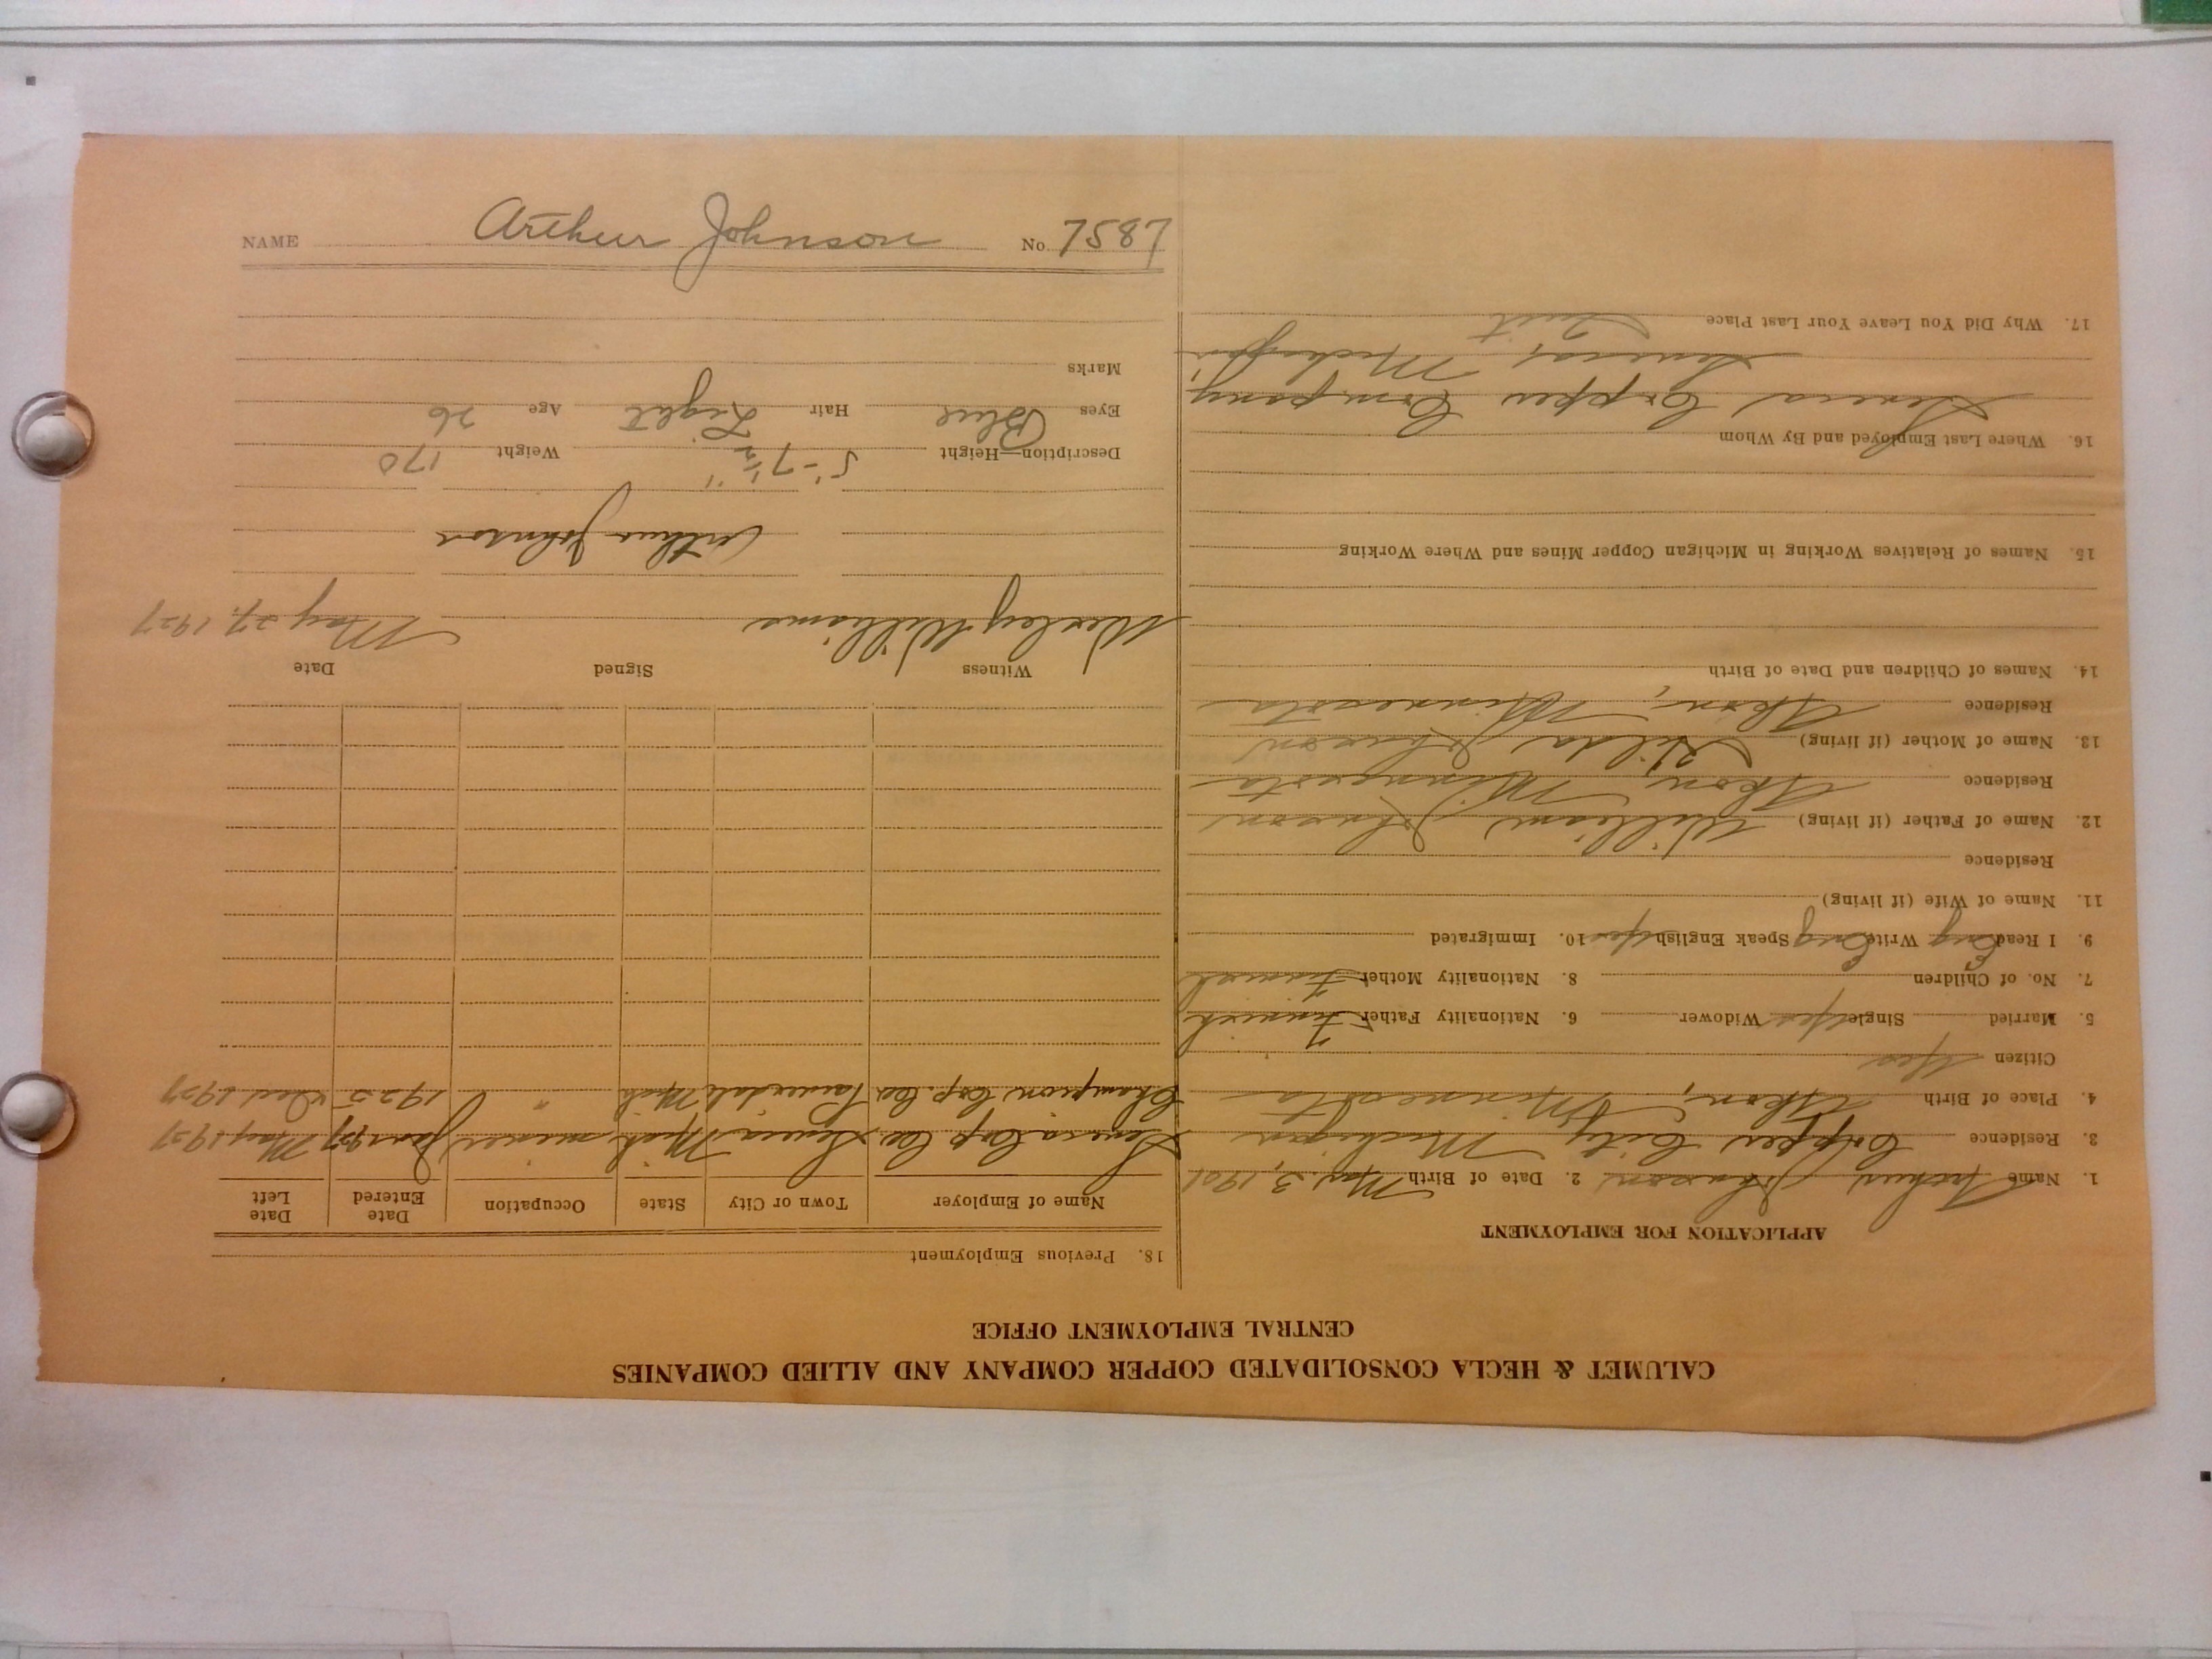 CALUMET & HECLA CONSOLIDATED COPPER COMPANY AND ALLIED COMPANIES
CENTRAL EMPLOYMENT OFFICE
APPLICATION FOR EMPLOYMENT
1. Name Arthur Johnson 2. Date of Birth Mar. 3, 1901
3. Residence Copper City Michigan
4. Place of Birth Minnesota
Citizen Yes
5. Married Single Yes Widower 6. Nationality Father Finnish
7. No. of Children 8. Nationality Mother Finnish
9. I Read Eng Write Eng Speak English Yes 10. Immigrated
11. Name of Wife (if living)
Residence
12. Name of Father (if living) William Johnson
Residence Minnesota
13. Name of Mother (if living) Hilda Johnson
Residence Minnesota
14. Names of Children and Date of Birth
15. Names of Relatives Working in Michigan Copper Mines and Where Working
16. Where Last Employed and By Whom
Seneca Copper Company
Seneca, Michigan
17. Why Did You Leave Your Last Place Quit
18. Previous Employment
Name of Employer Town or City State Occupation Date Entered Date Left
Seneca Cop Co Seneca Mich Mich miner Jan 1927 May 1927
Champion Cop. Co Painesdale Mich " 1925 Dec 1927
Witness Signed Date
Wesley Williams May 27, 1927
Arthur Johnson
Description—Height 5'-7½" Weight 170
Eyes Blue Hair Light Age 26
Marks
NAME Arthur Johnson No. 7587